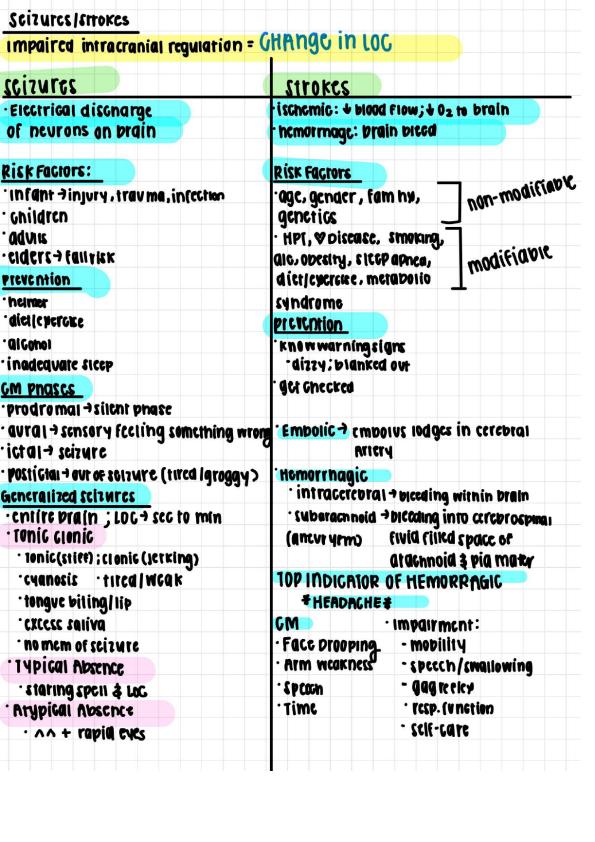 Seizures/strokes
impaired intracranial regulation = CHANGE in LOC
seizures
· Electrical discharge
of neurons on brain
Risk Factors:
· infant → injury, trauma, infection
· children
· adults
· elders → fall risk
Prevention
· helmet
· diet/exercise
· alcohol
· inadequate sleep
CM phases
· prodromal → silent phase
· aural → sensory feeling something wrong
· ictal → seizure
· postictal → out of seizure (tired/groggy)
Generalized seizures
· entire brain ; LOC → sec to min
· Tonic clonic
· Tonic(stiff); clonic (jerking)
· cyanosis · tired/weak
· tongue biting/lip
· excess saliva
· no mem of seizure
· Typical Absence
· staring spell & LOC
· Atypical Absence
· ^^ + rapid eyes
strokes
· ischemic: ↓ blood flow; ↓ O2 to brain
· hemorrhage: brain bleed
Risk Factors
· age, gender, fam hx,
genetics
non-modifiable
· HPT, ♡ Disease, smoking,
alc, obesity, sleep apnea,
diet/exercise, metabolic
syndrome
modifiable
prevention
· know warning signs
· dizzy; blanked out
· get checked
· Embolic → embolus lodges in cerebral
artery
· Hemorrhagic
· intracerebral → bleeding within brain
· subarachnoid → bleeding into cerebrospinal
(aneurysm) fluid filled space of
arachnoid & pia mater
TOP INDICATOR OF HEMORRAGIC
*HEADACHE*
CM
· Face Drooping
· Arm weakness
· Speech
· Time
· impairment:
- mobility
- speech/swallowing
- gag reflex
· resp. function
· self-care